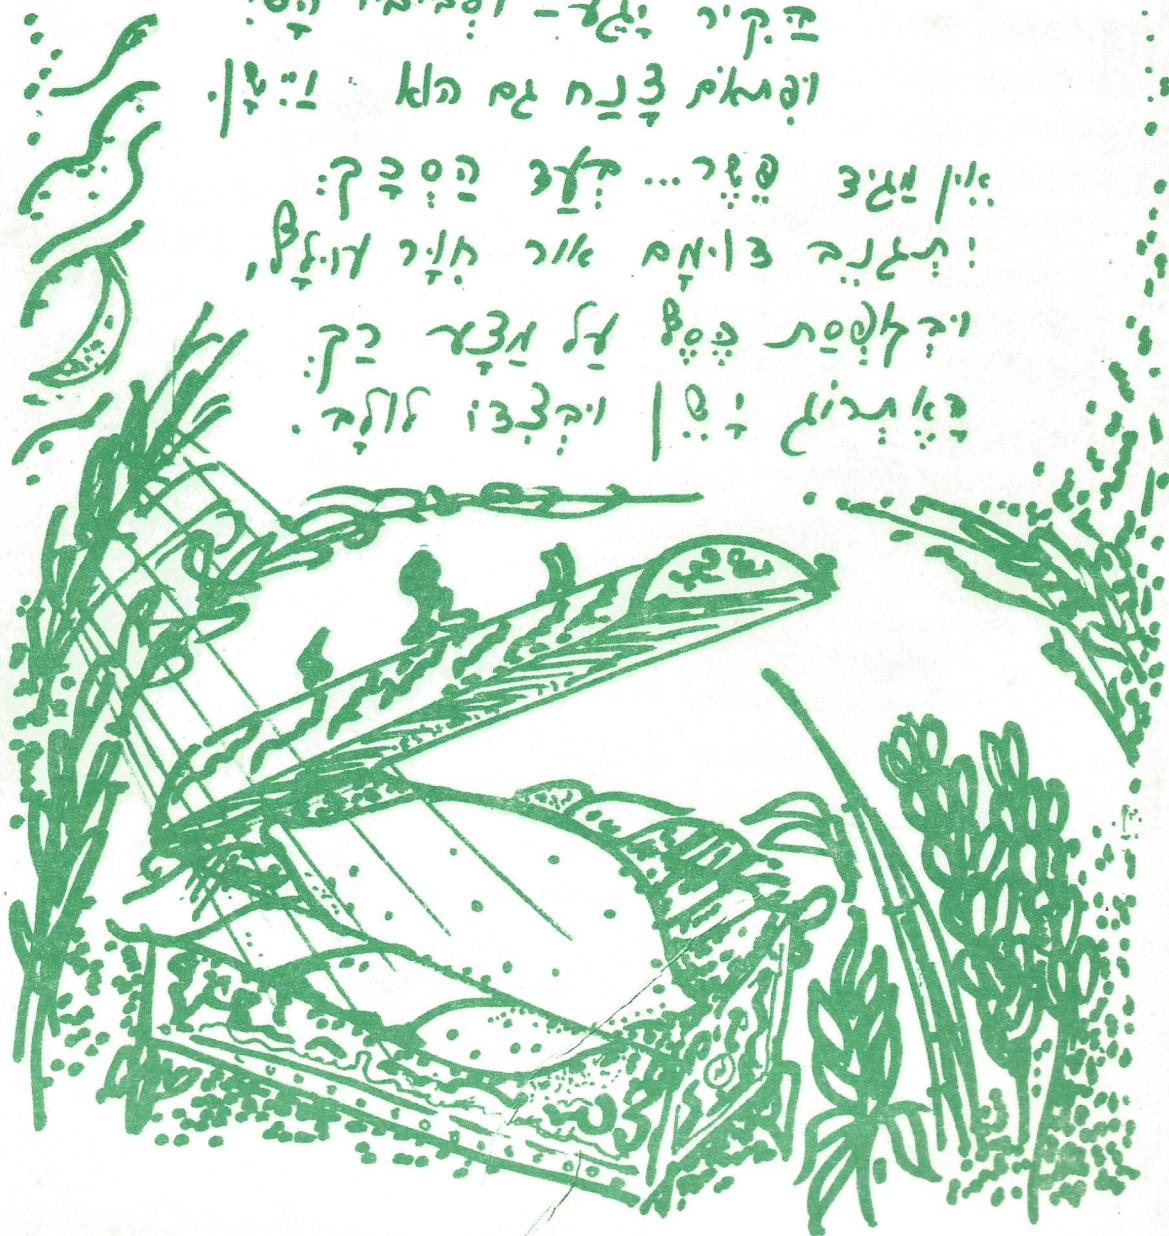 הַקִּיר יָגֵעַ – וּסְבִיבָיו
וּפִתְאֹם צָנַח גם הוא וַיִּישָׁן.
אֵין מַגִּיד פֵּשֶׁר... בְּעַד הַסְּכָךְ:
יִתְגַּנֵּב דּוּמָם אור חִוֵּר
וּבְקוּפְסַת כֶּסֶף עַל מַצָּע רַךְ:
הָאֶתְרוֹג יָשֵׁן וּבְצִדּוֹ לוּלָב.